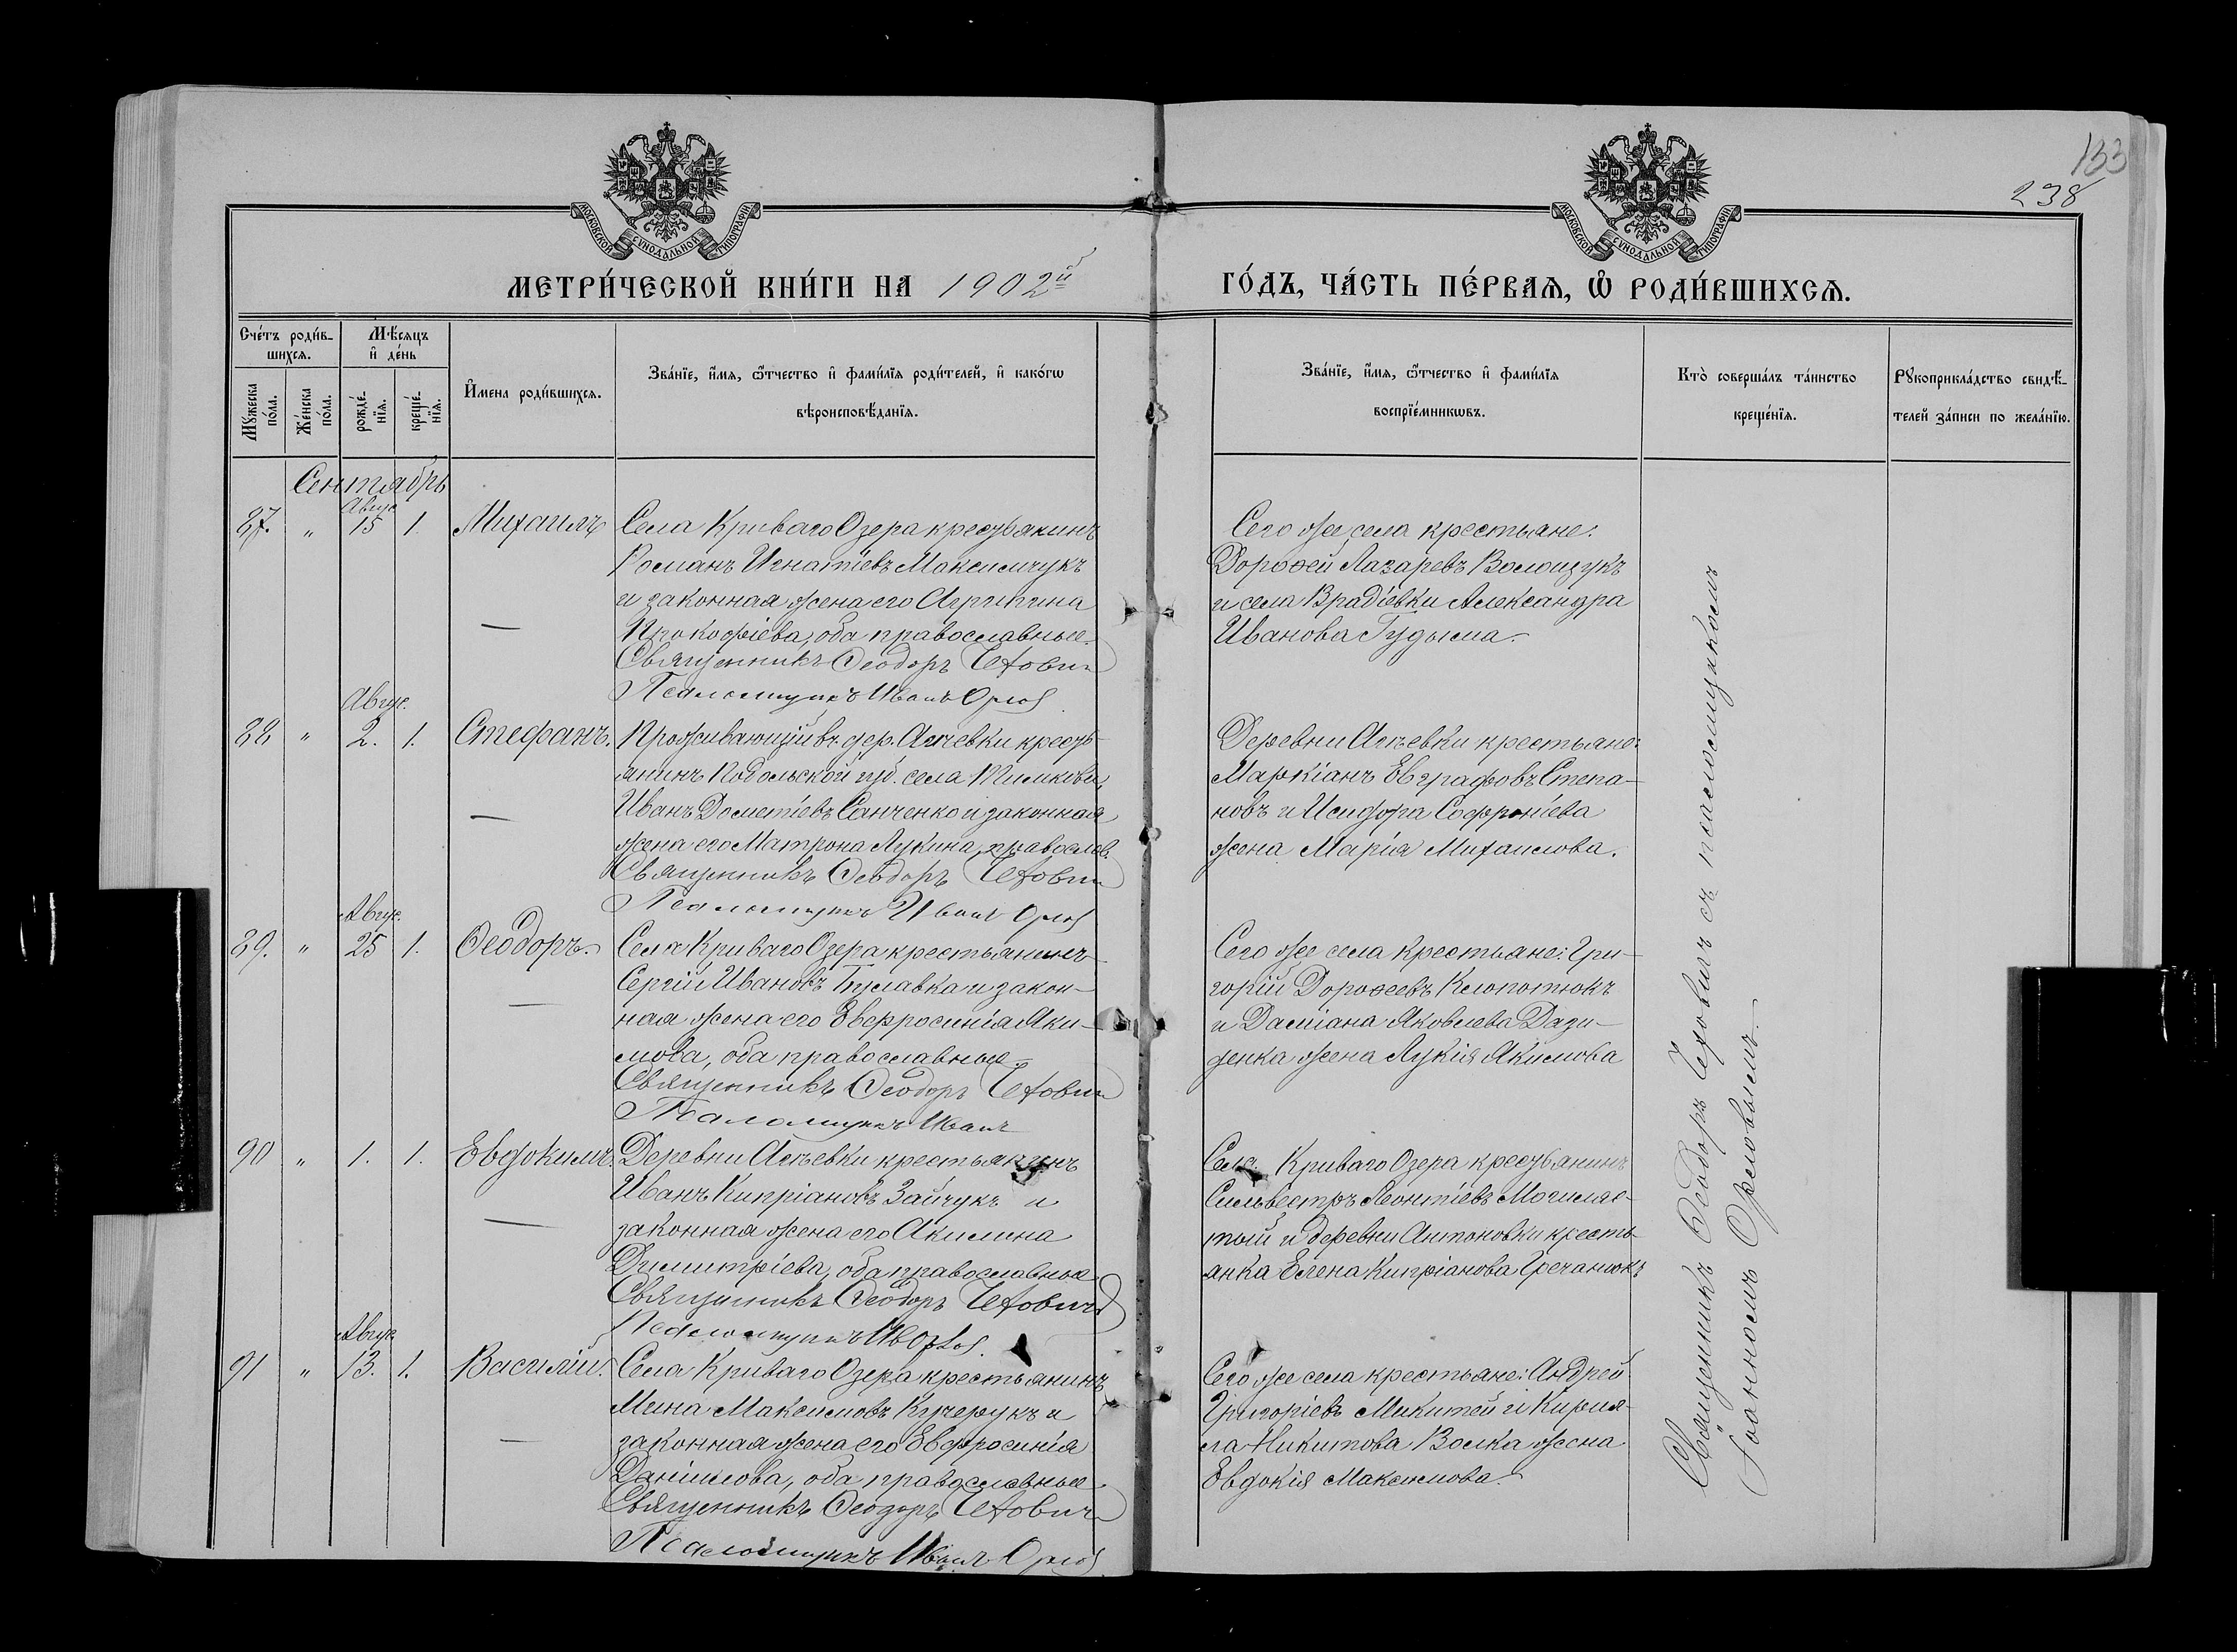 133
238
МОСКОВСКОЙ СѴНОДАЛЬНОЙ ТИПОГРАФІИ
МОСКОВСКОЙ СѴНОДАЛЬНОЙ ТИПОГРАФІИ
МЕТРИ́ЧЕСКОЙ КНИ́ГИ НА 1902й
ГО́ДЪ, ЧА́СТЬ ПЕ́РВАѦ, Ѡ҆ РОДИ́ВШИХСѦ.
Сче́тъ роди́в-
шихсѧ.
Мѣ́сѧцъ
и҆ де́нь
Мꙋ́жеска
по́ла.
Же́нска
по́ла.
рожде́-
нїѧ.
креще́-
нїѧ.
И҆мена роди́вшихсѧ.
Зва́нїе, и҆́мѧ, ѻ҆́тчество и҆ фами́лїѧ роди́телей, и҆ како́гѡ
вѣроисповѣ́данїѧ.
Зва́нїе, и҆́мѧ, ѻ҆́тчество и҆ фами́лїѧ
воспрїе́мникѡвъ.
Кто̀ соверша́лъ та́инство
креще́нїѧ.
Рꙋкоприкла́дство свидѣ́-
телей за́писи по жела́нїю.
Сентябрь
Авгус
87. " 15 1. Михаилъ
Села Криваго Озера крестьянинъ
Романъ Игнатіевъ Максимчукъ
и законная жена его Агрипина
Прокофіева, оба православные.
Священникъ Ѳеодоръ Чехович
Псаломщикъ Иванъ Орлов
Сего же села крестьяне:
Дороѳей Лазаревъ Волощукъ
и села Врадіевки Александра
Иванова Гудыма.
Авгус.
88 " 2. 1. Стефанъ.
Проживающій въ дер. Асѣевки кресть-
янинъ Подольской губ. села
Иванъ Дометіевъ Санченко и законная
жена его Матрона Лукина, православ.
Священникъ Ѳеодоръ Чехович
Псаломщикъ Иванъ Орлов
Деревни Асѣевки крестьяне:
Маркіанъ Евграфовъ Степа-
новъ и Исидора Софроніева
жена Марія Михаилова.
Авгус.
89. " 25 1. Ѳеодоръ.
Села Криваго Озера крестьянинъ
Сергій Ивановъ Булавка и закон-
ная жена его Евфросинія Яки-
мова, оба православные.
Священникъ Ѳеодоръ Чехович
Псаломщикъ Иванъ
Сего же села крестьяне: Гри-
горій Дороѳеевъ Клопотюкъ
и Даміана Яковлева Дази-
денка жена Лукія Якимова
90 " 1. 1. Евдокимъ.
Деревни Асѣевки крестьянинъ
Иванъ Кипріановъ Зайчукъ и
законная жена его Акилина
Димитріева, оба православные.
Священникъ Ѳеодоръ Чехович
Псаломщикъ Ив Орлов.
Села Криваго Озера крестьянинъ
Сильвестръ Леонтіевъ Могиля-
тый и деревни Антоновки кресть-
янка Елена Кипріанова Гречанюкъ
Авгус
91 " 13. 1. Василій.
Села Криваго Озера крестьянинъ
Мина Максимовъ Кучерукъ и
законная жена его Евфросинія
Даніилова, оба православные.
Священникъ Ѳеодоръ Чехович
Псаломщикъ Иванъ Орлов
Сего же села крестьяне: Андрей
Григоріевъ Микитей и Кирил-
ла Никитова Волка жена
Евдокія Максимова.
Священникъ Ѳеодоръ Чеховичъ съ псаломщикомъ
Іоанномъ Орловымъ.